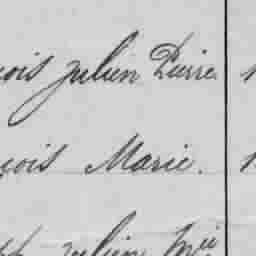 çois Julien Pierre
çois Marie.
Julien Mie